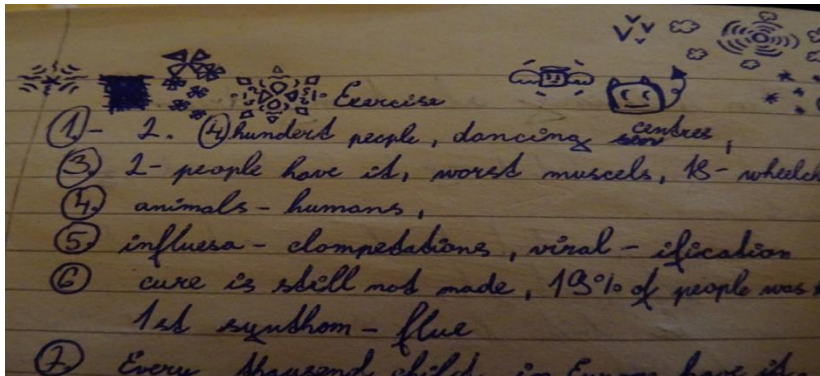 Exercise
①- 2. ④ hundert people, dancing centres,
③. 2- people have it, worst muscels, 18- wheelch
④. animals - humans,
⑤. influesa - clompedations, viral - ification
⑥ cure is still not made, 19% of people was
1st synthom - flue
⑦. Every thousend child in Europe have it.